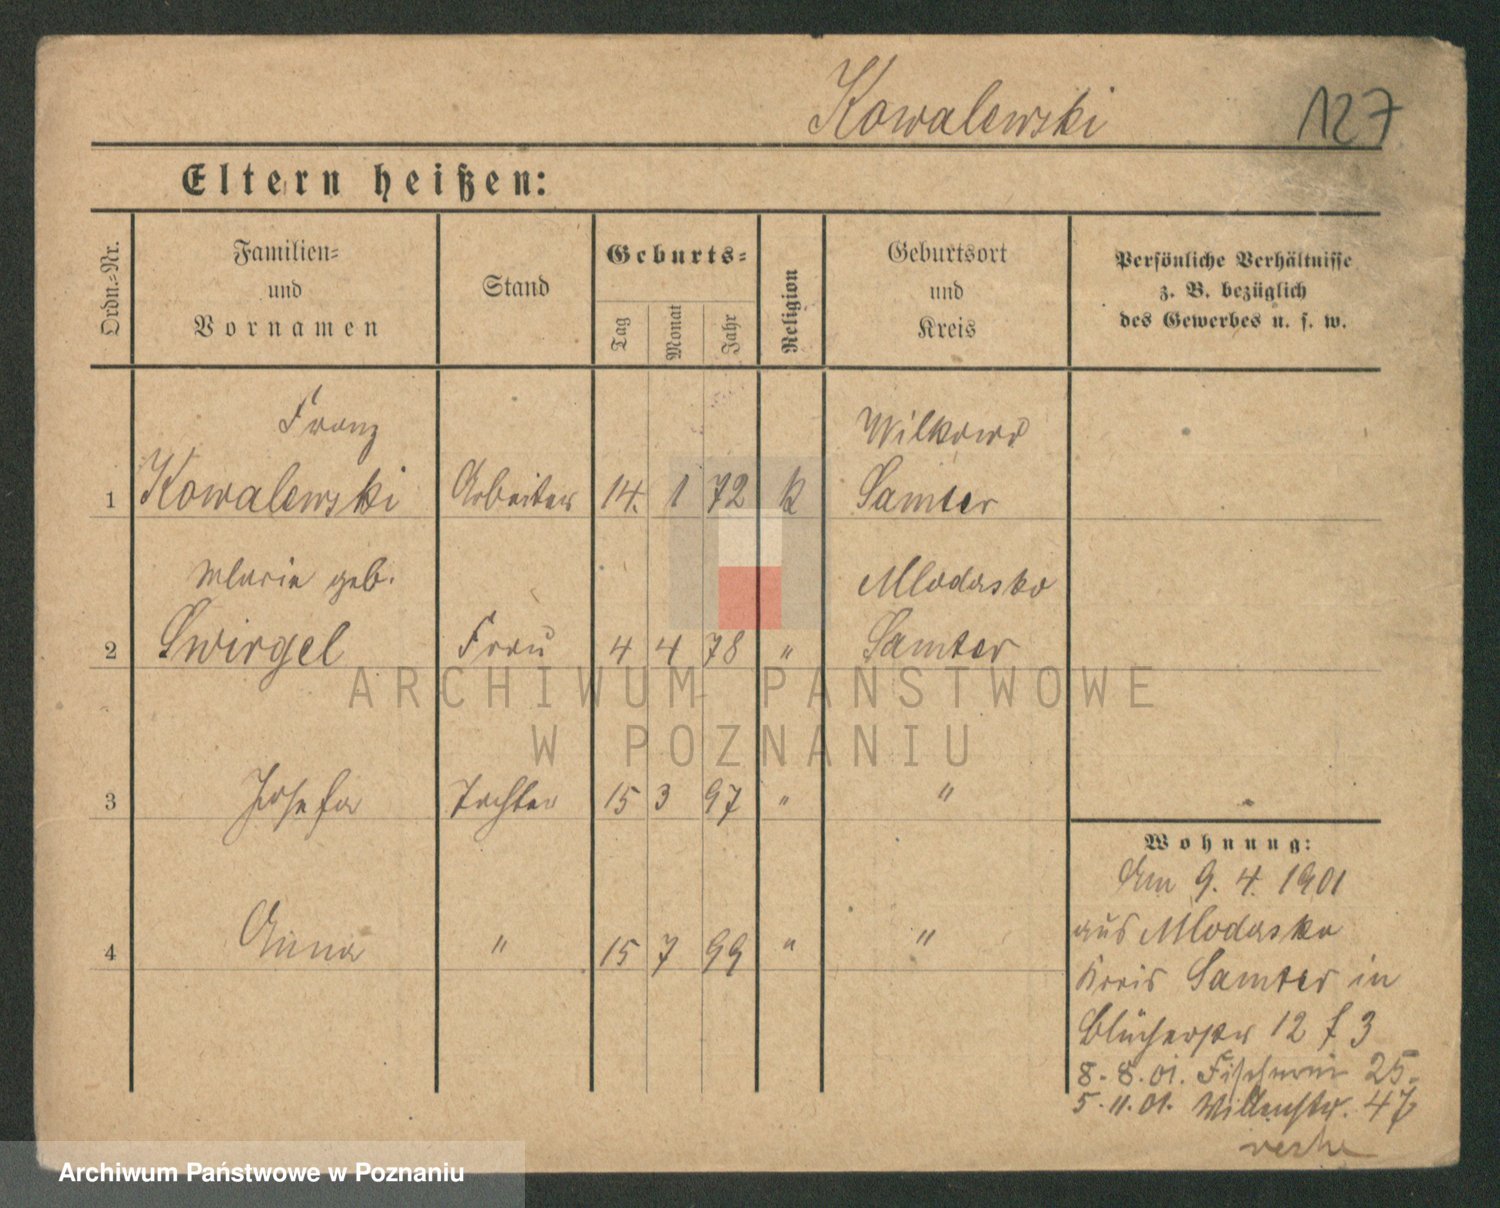 Kowalewski 127
Eltern heißen:
Ordn.-Nr.
Familien-
und
Vornamen
Stand
Geburts-
Tag
Monat
Jahr
Religion
Geburtsort
und
Kreis
Persönliche Verhältnisse
z. B. bezüglich
des Gewerbes u. s. w.
Franz Wilkowo
1 Kowalewski Arbeiter 14. 1 72 k Samter
Marie geb. Mlodasko
2 Swirgel Frau 4 4 78 " Samter
ARCHIWUM PAŃSTWOWE
W POZNANIU
3 Josefa Tochter 15 3 97 " "
4 Anna " 15 7 99 " "
Wohnung:
Am 9. 4. 1901
aus Mlodasko
Kreis Samter in
Blücherstr 12 f 3
8. 8. 01. Fischerei 25.
5. 11. 01. 47
Archiwum Państwowe w Poznaniu